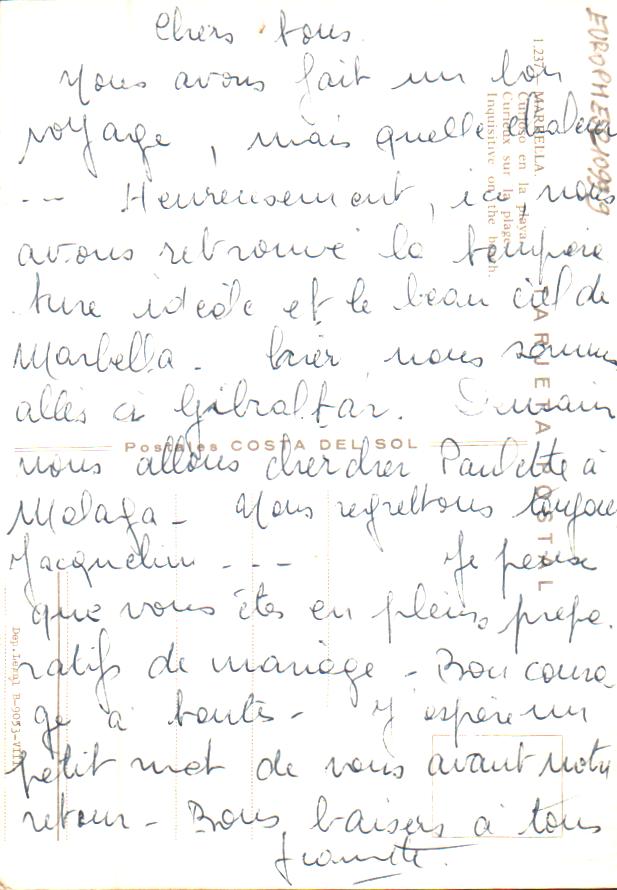 Chers tous
Nous avons fait un bon
voyage, mais quelle chaleur
--- Heureusement, ici, nous
avons retrouvé la tempéra
ture idéale et le beau ciel de
Marbella. hier, nous sommes
allés à Gibraltar. Demain
nous allons chercher Paulette à
Malaga - Nous regrettons toujours
Jacqueline --- Je pense
que vous êtes en pleins prépa.
ratifs de mariage - Bon coura
ge à toutes - J'espère un
petit mot de vous avant notre
retour - Bons baisers à tous
Postales COSTA DEL SOL
TARJETA POSTAL
1.237 - MARBELLA.
Curioso en la playa.
Curieux sur la plage.
Inquisitive on the beach.
Dep. Legal B-9053-VIII